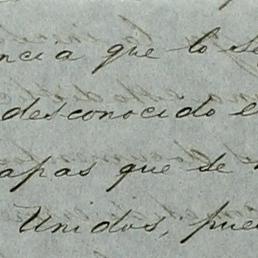 ncia que lo se
desconocido e
apas que se
Unidos, pue